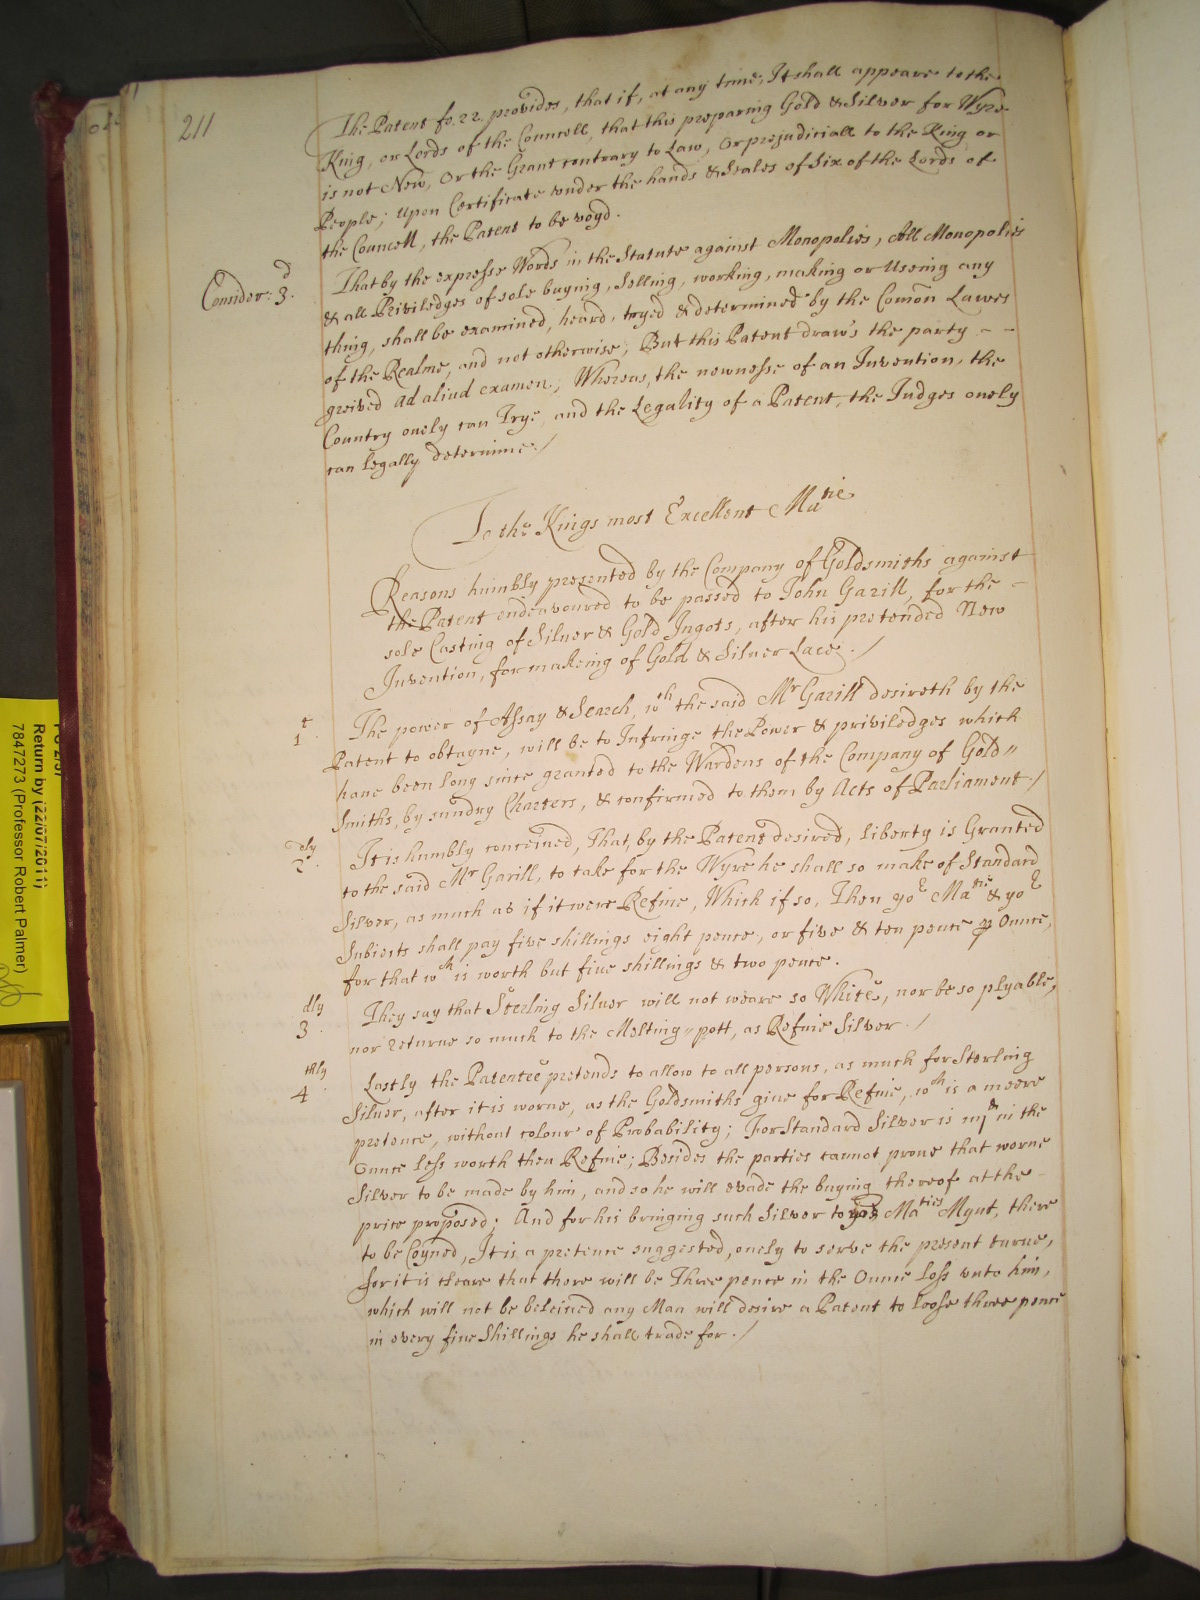 211
The Patent fo. 22. provides, that if, at any time, It shall appeare to the
King, or Lords of the Councell, that this preparing Gold & Silver for Wyre
is not New, Or the Grant contrary to Law, Or prejudiciall to the King or
People; Upon Certificate under the hands & Seales of Six of the Lords of
the Councell, the Patent to be voyd.
Consider: 3.d
That by the expresse Words in the Statute against Monopolies, All Monopolies
& all Priviledges of sole buying, Selling, working, making or Useing any
thing, shall be examined, heard, tryed & determined by the Comõn Lawes
of the Realme, and not otherwise; But this Patent draw's the party - -
greived ad aliud examen; Whereas, the newnesse of an Invention, the
Country onely can Trye, and the Legality of a Patent, the Judges onely
can legally determine./
To the Kings most Excellent Matie
Reasons humbly presented by the Company of Goldsmiths against
the Patent endeavoured to be passed to John Garill, for the -
sole Casting of Silver & Gold Ingots, after his pretended New
Invention, for makeing of Gold & Silver Lace./
1t
The power of Assay & Search, wch the said Mr Garill desireth by the
Patent to obtayne, will be to Infringe the Power & priviledges which
have been long since granted to the Wardens of the Company of Gold"
Smiths, by sundry Charters, & confirmed to them by Acts of Parliament/
2dly
It is humbly conceived, That, by the Patent desired, liberty is Granted
to the said Mr Garill, to take for the Wyre he shall so make of Standard
Silver, as much as if it were Refine, Which if so, Then yor Matie & yor
Subiects shall pay five shillings eight pence, or five & ten pence p Ounce,
for that wch is worth but five shillings & two pence.
3dly
They say that Sterling Silver will not weare so White, nor be so plyable,
nor returne so much to the Melting"pott, as Refine Silver./
4thly
Lastly the Patentee pretends to allow to all persons, as much for Sterling
Silver, after it is worne, as the Goldsmiths give for Refine, wch is a meere
pretence, without colour of Probability; For Standard Silver is iijd in the
Ounce less worth then Refine; Besides the parties cannot prove that worne
Silver to be made by him, and so he will evade the buying thereof at the -
price proposed; And for his bringing such Silver to yor Maties Mynt, there
to be Coyned, It is a pretence suggested, onely to serve the present turne,
for it is cleare that there will be Three pence in the Ounce loss unto him,
which will not be beleived any Man will desire a Patent to loose three pence
in every five Shillings he shall trade for./
Return by (22/07/2011)
7847273 (Professor Robert Palmer)